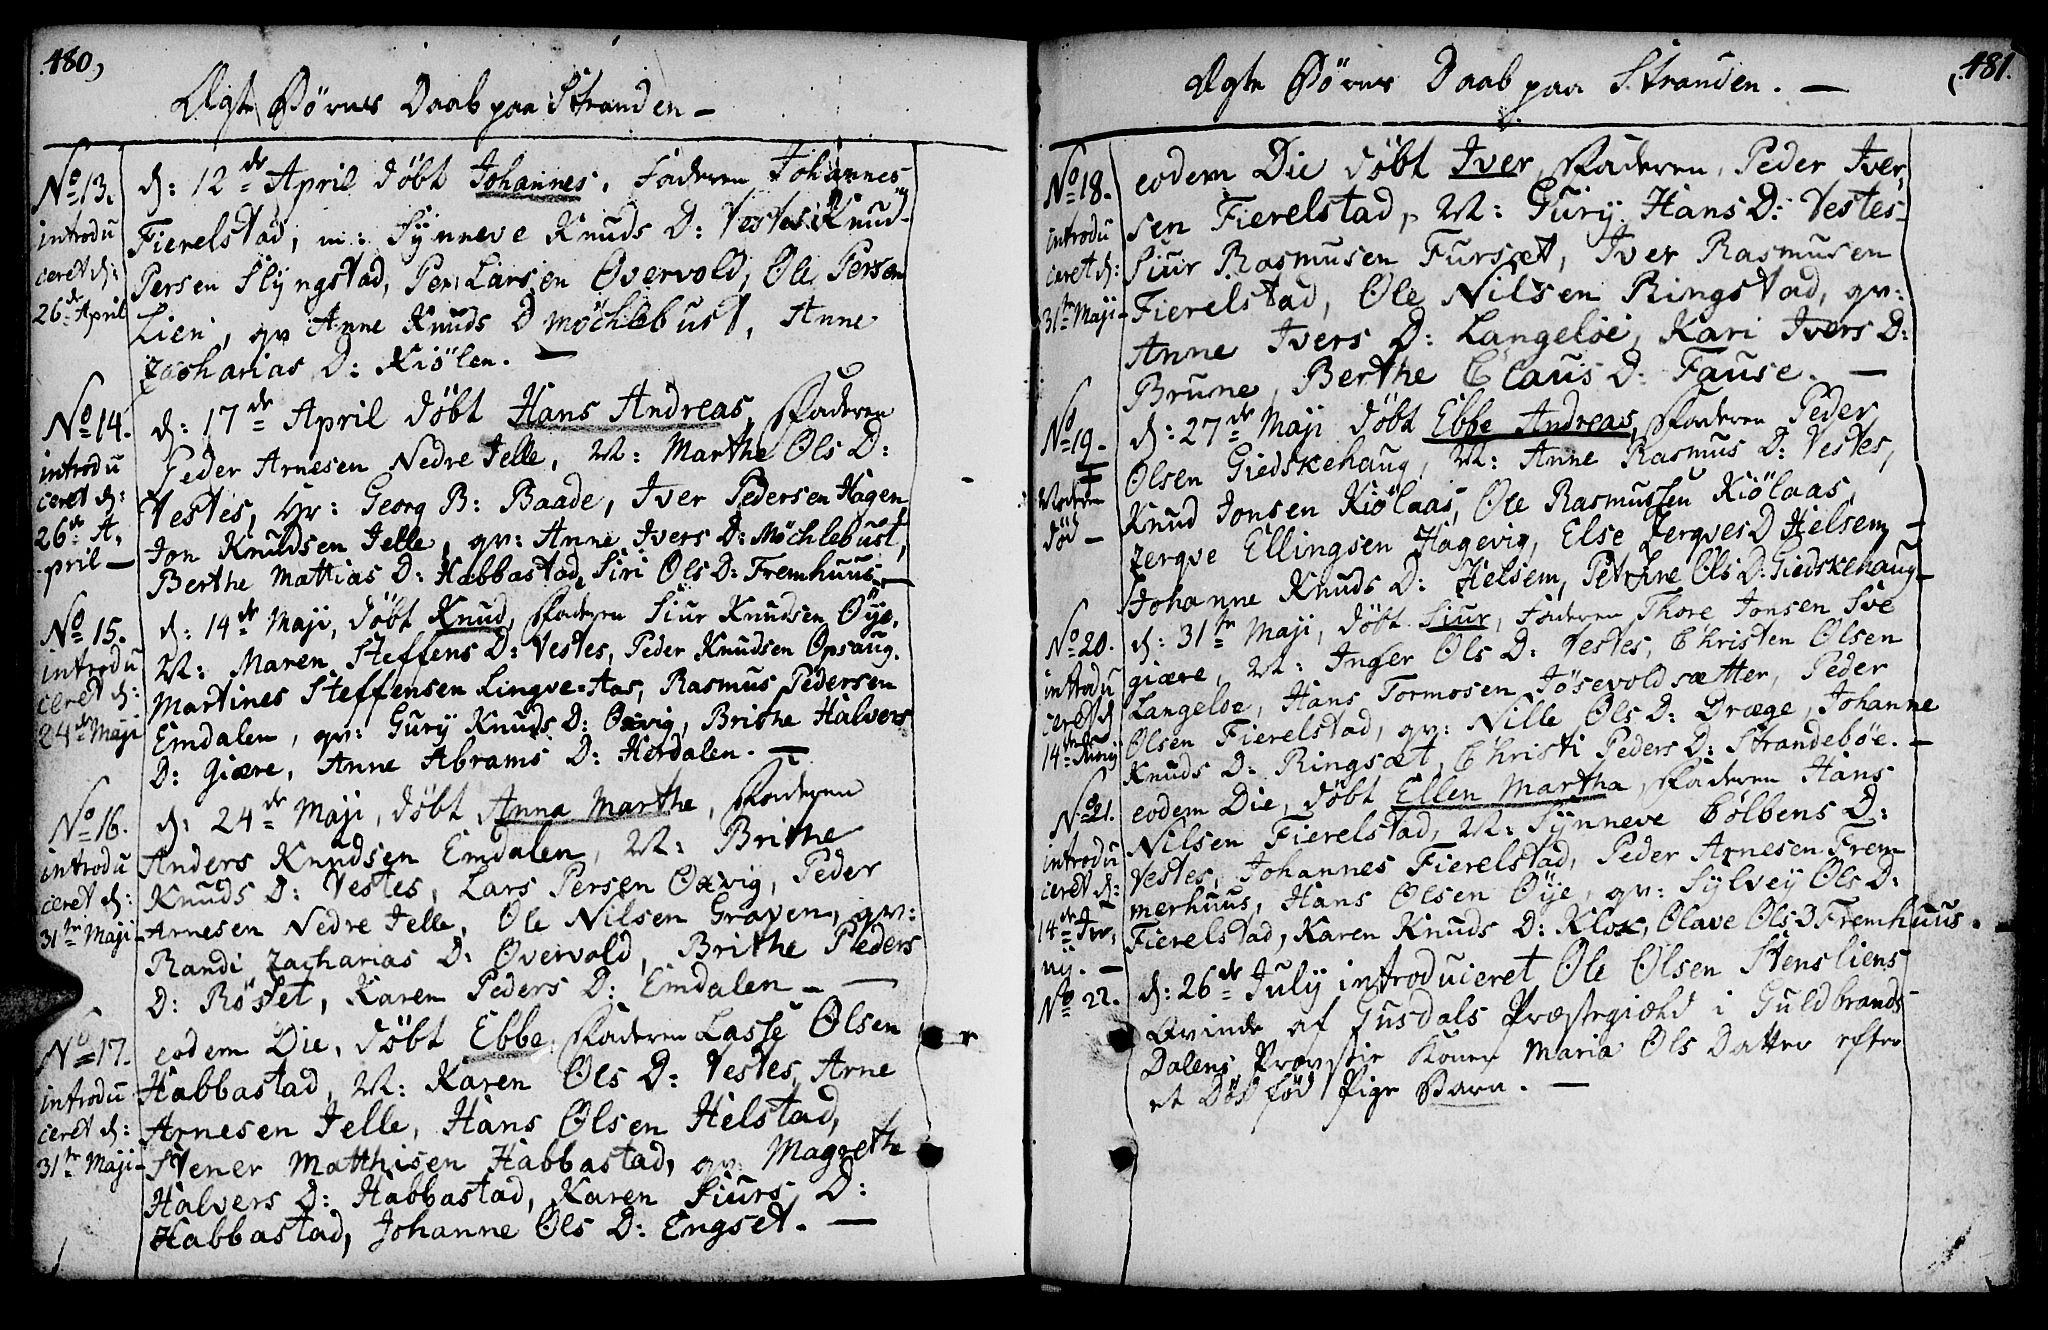 480,
Ægte Börnes Daab paa Stranden –
No 13.
introdu
ceret d:
26de April
d: 12de April döbt Johannes, Faderen Johannes
Fierelstad, m: Synneve Knuds D: Vestes: Knud
Persen Slyngstad, Per Larsen Overvold, Ole Persen
Lien, qv Anne Knuds D Möchlebust, Anne
Zacharias D: Kiölen. –
No 14.
introdu
ceret d:
26de A,
pril –
d: 17de April döbt Hans Andreas, Faderen
Peder Arnesen Nedre Jelle, M: Marthe Ols D:
Vestes, Hr: Georg B: Baade, Iver Pedersen Hagen,
Jon Knudsen Jelle, qv: Anne Ivers D: Möchlebust,
Berthe Mattias D: Habbastad, Siri Ols D: Fremhuus –
No 15.
introdu
ceret d:
24de Maji
d: 14de Maji, döbt Knud, Faderen Siur Knudsen Öye,
M: Maren Steffens D: Vestes, Peder Knudsen Opsaug,
Martines Steffensen Lingve=Aas, Rasmus Pedersen
Emdalen, qv: Gury Knuds D: Oxvig, Brithe Halvers
D: Giære, Anne Abrams D: Herdalen. –
No 16.
introdu
ceret d:
31te Maji
d: 24de Maji, döbt Anna Marthe, Faderen
Anders Knudsen Emdalen, M: Brithe
Knuds D: Vestes, Lars Persen Oxvig, Peder
Arnesen Nedre Jelle, Ole Nilsen Graven, qv:
Randi Zacharias D: Overvold, Brithe Peders
D: Röset, Karen Peders D: Emdalen – –
No 17.
introdu
ceret d:
31te Maji –
eodem Die, döbt Ebbe, Faderen Lasse Olsen
Habbastad, M: Karen Ols D: Vestes, Arne
Arnesen Jelle, Hans Olsen Helstad,
Svener Matthisen Habbastad, qv: Magrethe
Halvers D: Habbastad, Karen Siurs D:
Habbastad, Johanne Ols D: Engset. –
481.
Ægte Börnes Daab paa Stranden. –
No 18.
introdu
ceret d:
31te Maji –
eodem Die döbt Iver, Faderen, Peder Iver,
sen Fierelstad, M: Gury Hans D: Vestes –
Siur Rasmusen Furset, Iver Rasmusen
Fierelstad, Ole Nilsen Ringstad, qv:
Anne Ivers D: Langeloe, Kari Ivers D:
Brune, Berthe Claus D: Fause. –
No 19.
Moderen
död –
d: 27de Maji döbt Ebbe Andreas, Faderen Peder
Olsen Giedskehaug, M: Anne Rasmus D: Vestes,
Knud Jonsen Kiölaas, Ole Rasmussen Kiölaas,
Zerqve Ellingsen Hagevig, Else Zerqves D Helsem –
Johanne Knuds D: Helsem, Petrine Ols D: Giedskehaug –
No 20.
introdu
ceret d
14de Junij
d: 31te Maji, döbt Siur, Faderen Thore Jonsen Sve
giære, M: Inger Ols D: Vestes, Christen Olsen
Langeloe, Hans Tormosen Jösevoldsætter, Peder
Olsen Fierelstad, qv: Nille Ols D: Dræge, Johanne
Knuds D: Ringsæt, Christi Peders D: Strandeböe. –
No 21.
introdu
ceret d:
14de Ju,
nij. –
eodem Die, döbt Ellen Martha, Faderen Hans
Nilsen Fierelstad, M: Synneve Colbens D:
Vestes, Johannes Fierelstad, Peder Arnesen Frem
merhuus, Hans Olsen Öye, qv: Sylvey Ols D:
Fierelstad, Karen Knuds D: Klok, Olave Ols D. Fremhuus.
No 22.
d: 26de July introduceret Ole Olsen Stensliens
Qvinde af Gusdals Præstegield i Guldbrands
Dalens Provstie Konen Maria Ols Datter efter
et Död fød Pige Barn. –